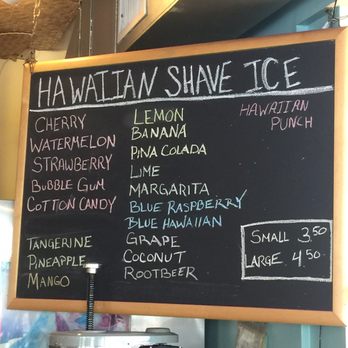 HAWAIIAN SHAVE ICE
CHERRY
WATERMELON
STRAWBERRY
BUBBLE GUM
COTTON CANDY
TANGERINE
PINEAPPLE
MANGO
LEMON
BANANA
PINA COLADA
LIME
MARGARITA
BLUE RASPBERRY
BLUE HAWAIIAN
GRAPE
COCONUT
ROOTBEER
HAWAIIAN
PUNCH
SMALL 3.50
LARGE 4.50